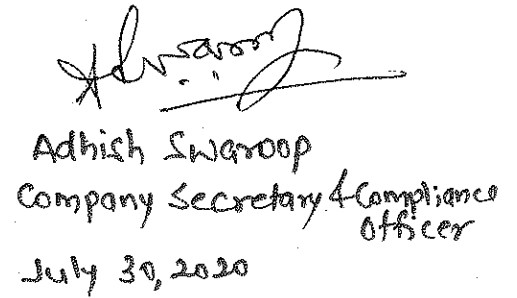 Adhish Swaroop
Company Secretary & Compliance
Officer
July 30, 2020